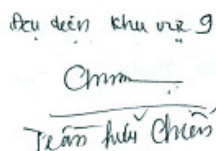 Đại diện khu vực 9
Trần Hữu Chiến